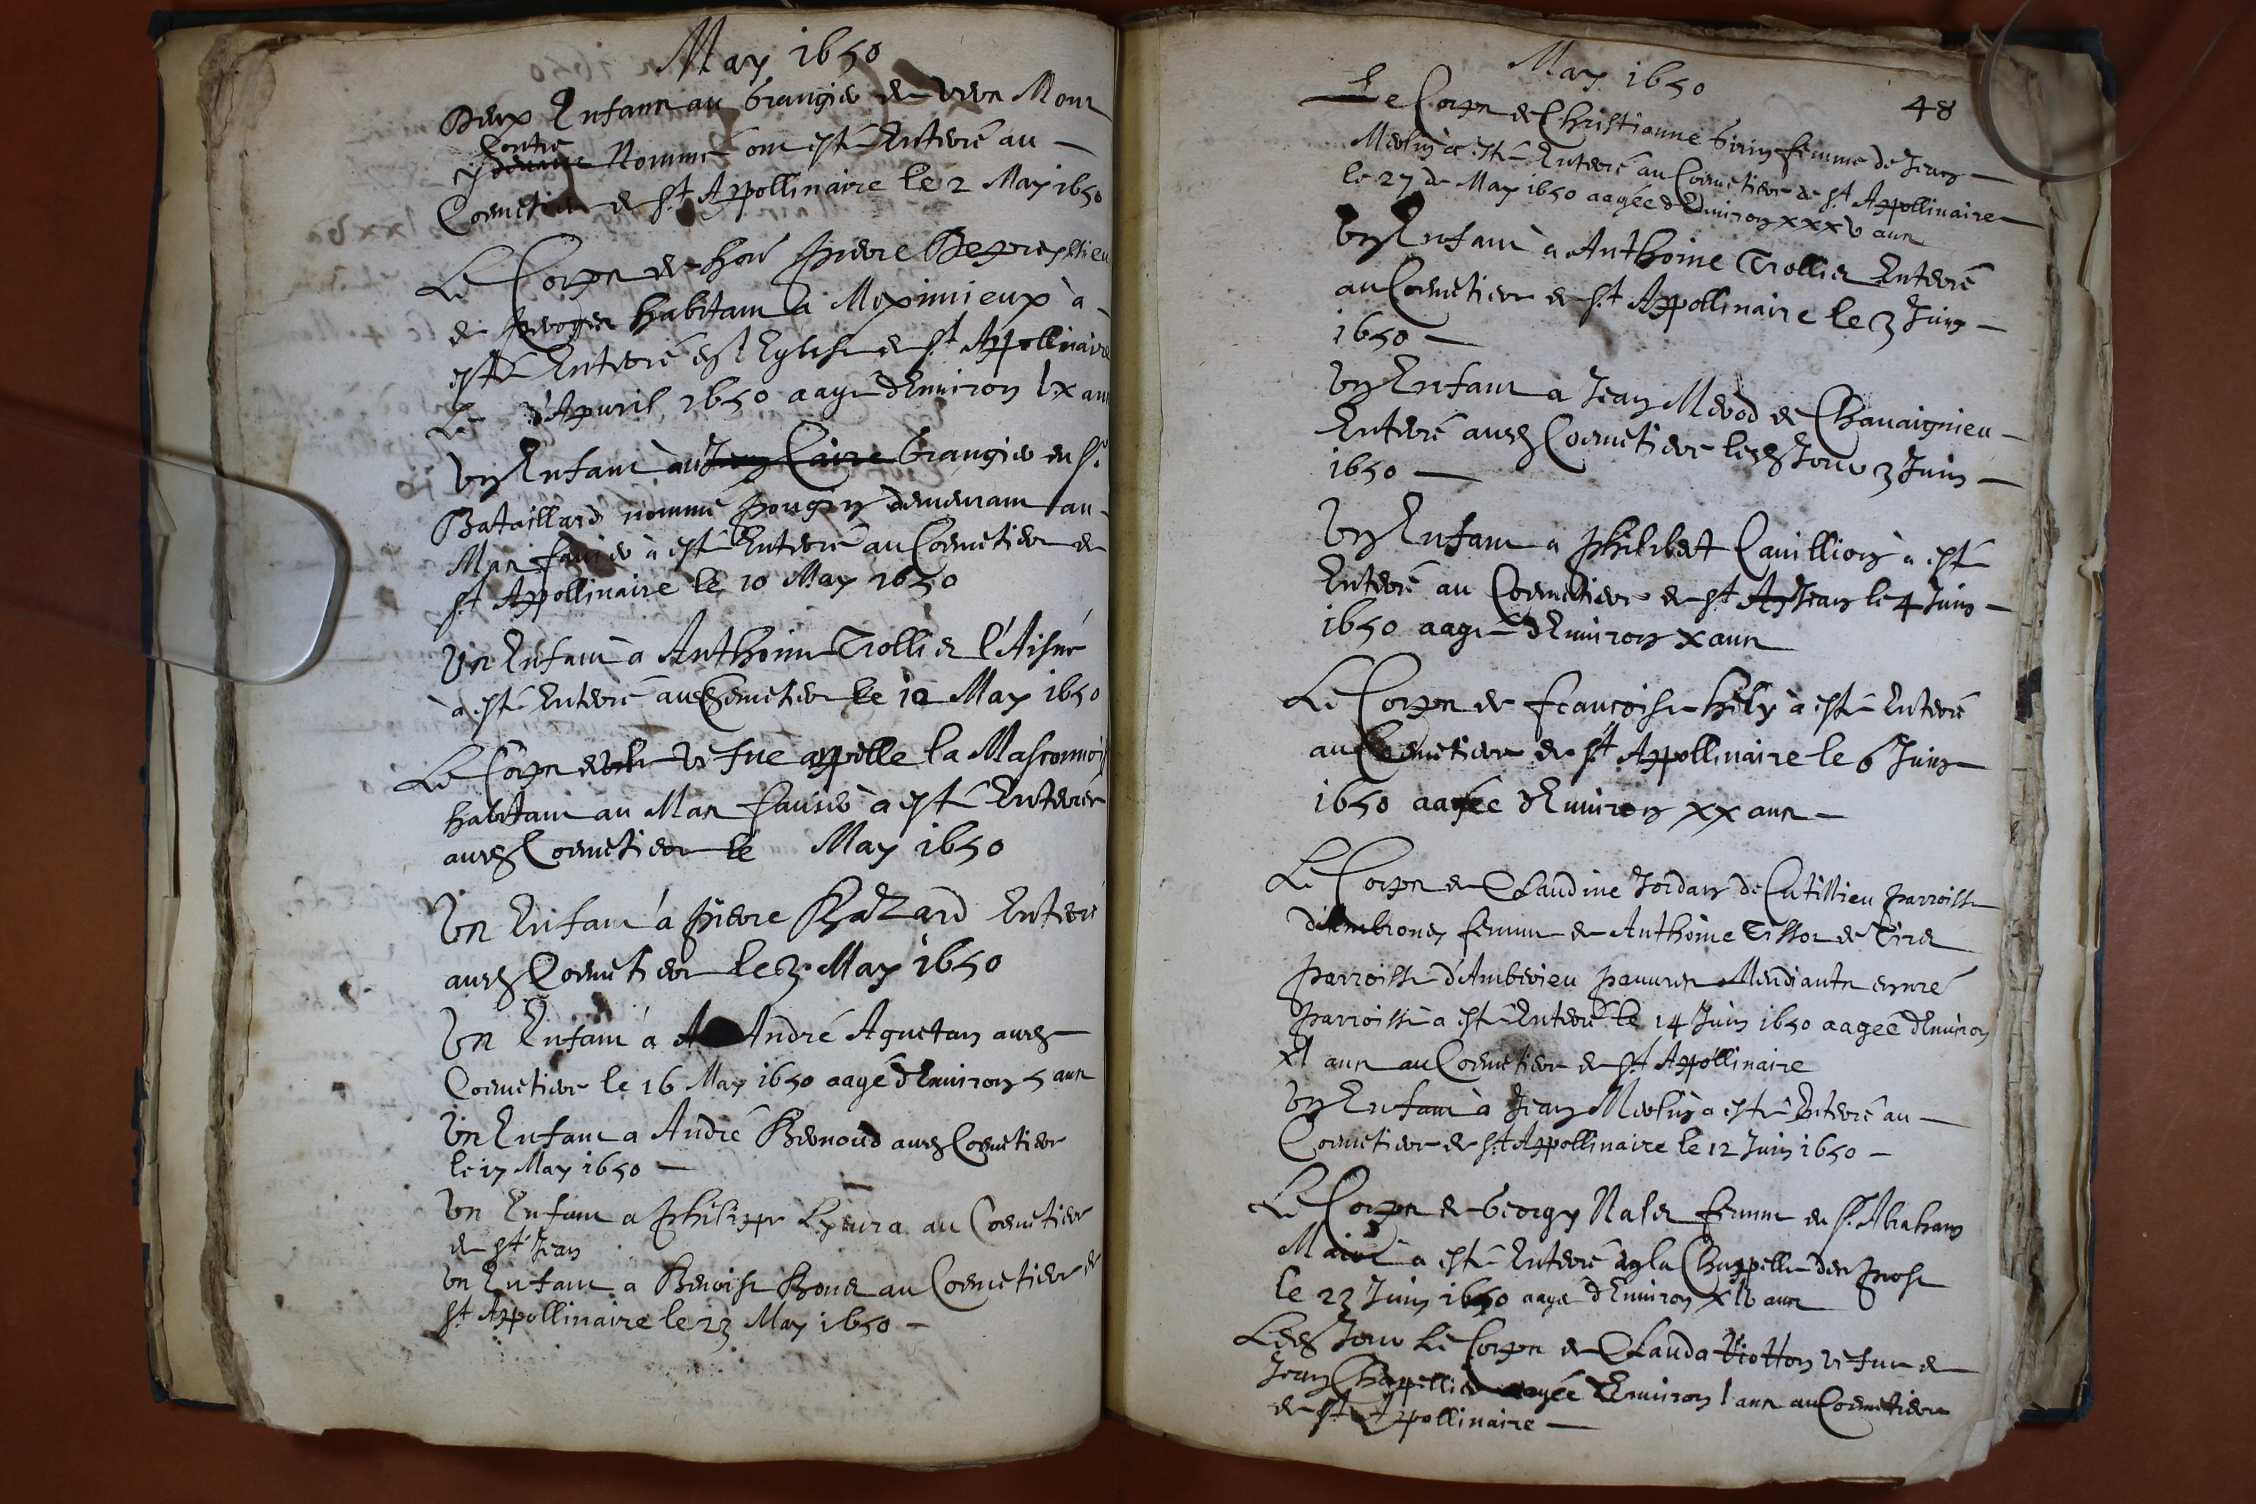 May 1650
Deux Enfans au Grangier de Mons
contre
Nommé ont esté Enterré au
Cemetiere de st Appollinaire le 2 May 1650
Le Corps de hon Pierre
de habitant a Meximieux à
esté Enterré Eglise de st Appollinaire
Le d'Apuril 1650 aagé d'Enuiron lx ans
Vn Enfant au Jean Claire Grangier du sr
Bataillard nommé Pougin demeurant au
Mas fauier à esté Enterré au Cemetiere de
st Appollinaire le 10 May 1650
Vn Enfant à Anthoine Trollier l'Aisné
à esté Enterré aud Cemetier le 12 May 1650
Le Corps de vefue appellé la Masconnois
habitant au Mas fauier à esté Enterrée
aud Cemetiere le May 1650
Vn Enfant à Pierre Bazard Enterré
aud Cemetiere le 3 May 1650
Vn Enfant à A André Aguetan aud
Cemetiere le 16 May 1650 aagé d'Enuiron 5 ans
Vn Enfant a André Bernoud aud Cemetiere
le 17 May 1650
Vn Enfant a Philippe au Cemetiere
de st Jean
Vn Enfant a Benoist au Cemetiere de
st Appollinaire le 23 May 1650
May 1650
48
Le Corps de Christianne Girin femme de Jean
Merlin à esté Enterré au Cemetiere de st Appollinaire
le 27 de May 1650 aagée d'Enuiron xxxv ans
Vn Enfant à Anthoine Trollier Enterré
au Cemetiere de st Appollinaire le 3 Juin
1650
Vn Enfant a Jean de Chauaignieu
Enterré aud Cemetiere led Jour 3 Juin
1650
Vn Enfant a Philibert Cauillion a esté
Enterré au Cemetiere de st Ap Jean le 4 Juin
1650 aagé d'Enuiron x ans
Le Corps de francoise hely à esté Enterré
au Cemetiere de st Appollinaire le 6 Juin
1650 aagée d'Enuiron xx ans
Le Corps de Claudine Jordan de Cutillieu parroisse
d'Ambronay femme de Anthoine Tissot de Tiret
parroisse d'Amberieu pauures Mendiants en nre
parroisse à esté Enterré le 14 Juin 1650 aagée d'Enuiron
xl ans au Cemetiere de st Appollinaire
Vn Enfant à Jean Merlin a esté Enterré au
Cemetiere de st Appollinaire le 12 Juin 1650
Le Corps de Georgy femme du sr Abraham
à esté Enterré en la Chappelle des
le 23 Juin 1650 aagé d'Enuiron xlv ans
Led Jour Le Corps de Clauda Viotton vefue de
Jean Chappellier aagée d'Enuiron l ans au Cemetiere
de st Appollinaire